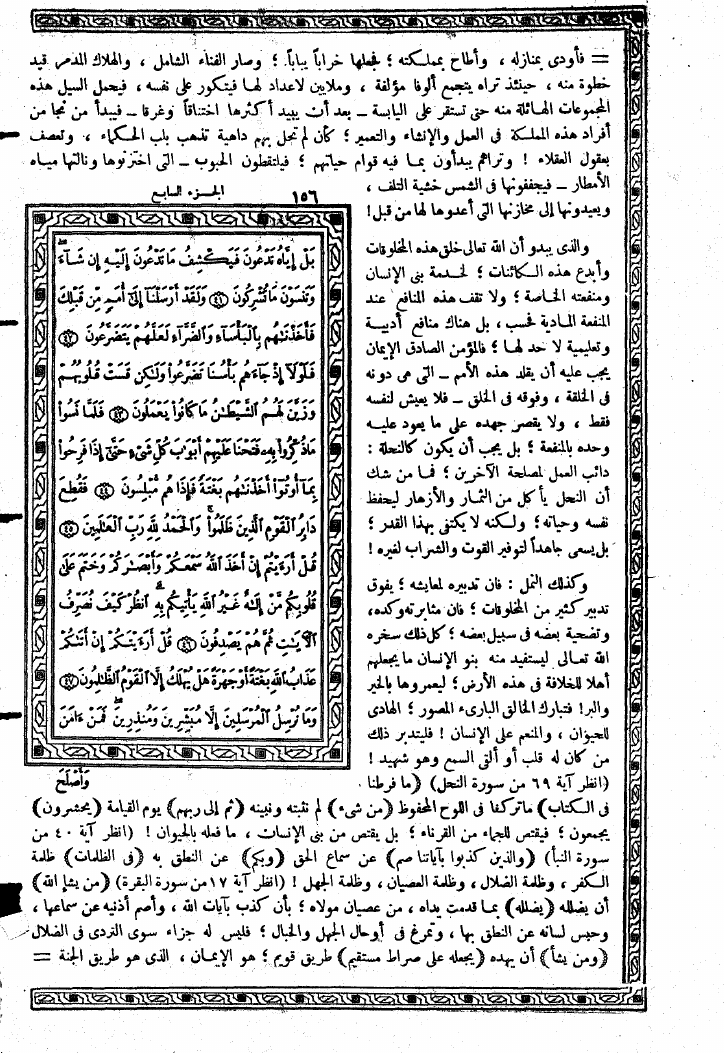 = فأودى بمنازله ، وأطاح بمملكته ؛ فجعلها خراباً يباباً . ؛ وصار الفناء الشامل ، والهلاك المدمر قيد
خطوة منه ، حينئذ تراه يتجمع ألوفا مؤلفة ، وملايين لاعداد لها فيتكور على نفسه ، فيحمل السيل هذه
المجموعات الهائلة منه حتى تستقر على اليابسة – بعد أن يبيد أكثرها اختناقاً وغرقا – فيبدأ من نجا من
أفراد هذه المملكة فى العمل والإنشاء والتعمير ؛ كأن لم تحل بهم داهية تذهب بلب الحكماء ، وتعصف
بعقول العقلاء ! وتراهم يبدأون بما فيه قوام حياتهم ؛ فيلتقطون الحبوب – التى اختزنوها ونالتها مياه
الأمطار – فيجففونها فى الشمس خشية التلف ،
ويعيدونها إلى مخازنها التى أعدوها لها من قبل !
والذى يبدو أن الله تعالى خلق هذه المخلوقات
وأبدع هذه الكائنات ؛ لخدمة بنى الإنسان
ومنفعته الخاصة ؛ ولا تقف هذه المنافع عند
المنفعة المادية فحسب ، بل هناك منافع أدبية
وتعليمية لا حد لها ؛ فالمؤمن الصادق الإيمان
يجب عليه أن يقلد هذه الأمم – التى هى دونه
فى الخلقة ، وفوقه فى الخلق – فلا يعيش لنفسه
فقط ، ولا يقصر جهده على ما يعود عليه
وحده بالمنفعة ؛ بل يجب أن يكون كالنحلة :
دائب العمل لمصلحة الآخرين ؛ فما من شك
أن النحل يأكل من الثمار والأزهار ليحفظ
نفسه وحياته ؛ ولكنه لا يكتفى بهذا القدر ؛
بل يسعى جاهداً لتوفير القوت والشراب لغيره !
وكذلك النمل : فان تدبيره لمعايشه ؛ يفوق
تدبير كثير من المخلوقات ؛ فان مثابرته وكده ،
وتضحية بعضه فى سبيل بعضه ؛ كل ذلك سخره
الله تعالى ليستفيد منه بنو الإنسان ما يجعلهم
أهلا للخلافة فى هذه الأرض ؛ ليعمروها بالخير
والبر ! فتبارك الخالق البارىء المصور ؛ الهادى
للحيوان ، والمنعم على الإنسان ! فليتدبر ذلك
من كان له قلب أو ألقى السمع وهو شهيد !
(انظر آية ٦٩ من سورة النحل) (ما فرطنا
١٥٦ الجزء السابع
بَلْ إِيَّاهُ تَدْعُونَ فَيَكْشِفُ مَا تَدْعُونَ إِلَيْهِ إِن شَآءَ
وَتَنسَوْنَ مَا تُشْرِكُونَ ٤١ وَلَقَدْ أَرْسَلْنَآ إِلَىٰٓ أُمَمٍ مِّن قَبْلِكَ
فَأَخَذْنَٰهُم بِالْبَأْسَآءِ وَالضَّرَّآءِ لَعَلَّهُمْ يَتَضَرَّعُونَ ٤٢
فَلَوْلَآ إِذْ جَآءَهُم بَأْسُنَا تَضَرَّعُوا وَلَٰكِن قَسَتْ قُلُوبُهُمْ
وَزَيَّنَ لَهُمُ الشَّيْطَٰنُ مَا كَانُوا يَعْمَلُونَ ٤٣ فَلَمَّا نَسُوا
مَا ذُكِّرُوا بِهِ فَتَحْنَا عَلَيْهِمْ أَبْوَٰبَ كُلِّ شَىْءٍ حَتَّىٰٓ إِذَا فَرِحُوا
بِمَآ أُوتُوٓا أَخَذْنَٰهُم بَغْتَةً فَإِذَا هُم مُّبْلِسُونَ ٤٤ فَقُطِعَ
دَابِرُ الْقَوْمِ الَّذِينَ ظَلَمُوا وَالْحَمْدُ لِلَّهِ رَبِّ الْعَٰلَمِينَ ٤٥
قُلْ أَرَءَيْتُمْ إِنْ أَخَذَ اللَّهُ سَمْعَكُمْ وَأَبْصَٰرَكُمْ وَخَتَمَ عَلَىٰ
قُلُوبِكُم مَّنْ إِلَٰهٌ غَيْرُ اللَّهِ يَأْتِيكُم بِهِ انظُرْ كَيْفَ نُصَرِّفُ
الْأَيَٰتِ ثُمَّ هُمْ يَصْدِفُونَ ٤٦ قُلْ أَرَءَيْتَكُمْ إِنْ أَتَىٰكُمْ
عَذَابُ اللَّهِ بَغْتَةً أَوْ جَهْرَةً هَلْ يُهْلَكُ إِلَّا الْقَوْمُ الظَّٰلِمُونَ ٤٧
وَمَا نُرْسِلُ الْمُرْسَلِينَ إِلَّا مُبَشِّرِينَ وَمُنذِرِينَ فَمَنْ ءَامَنَ
وَأَصْلَحَ
فى الكتاب) ما تركنا فى اللوح المحفوظ (من شىء) لم نثبته ونبينه (ثم إلى ربهم) يوم القيامة (يحشرون)
يجمعون ؛ فيقتص للجماء من القرناء ؛ بل يقتص من بنى الإنسان ، ما فعله بالحيوان ! (انظر آية ٤٠ من
سورة النبأ) (والذين كذبوا بآياتنا صم) عن سماع الحق (وبكم) عن النطق به (فى الظلمات) ظلمة
الكفر ، وظلمة الضلال ، وظلمة العصيان ، وظلمة الجهل ! (انظر آية ١٧ من سورة البقرة) (من يشإ الله)
أن يضلله (يضلله) بما قدمت يداه ، من عصيان مولاه ؛ بأن كذب بآيات الله ، وأصم أذنيه عن سماعها ،
وحبس لسانه عن النطق بها ، وتمرغ فى أوحال الجهل والخبال ؛ فليس له جزاء سوى التردى فى الضلال
(ومن يشأ) أن يهده (يجعله على صراط مستقيم) طريق قويم ؛ هو الإيمان ، الذى هو طريق الجنة =